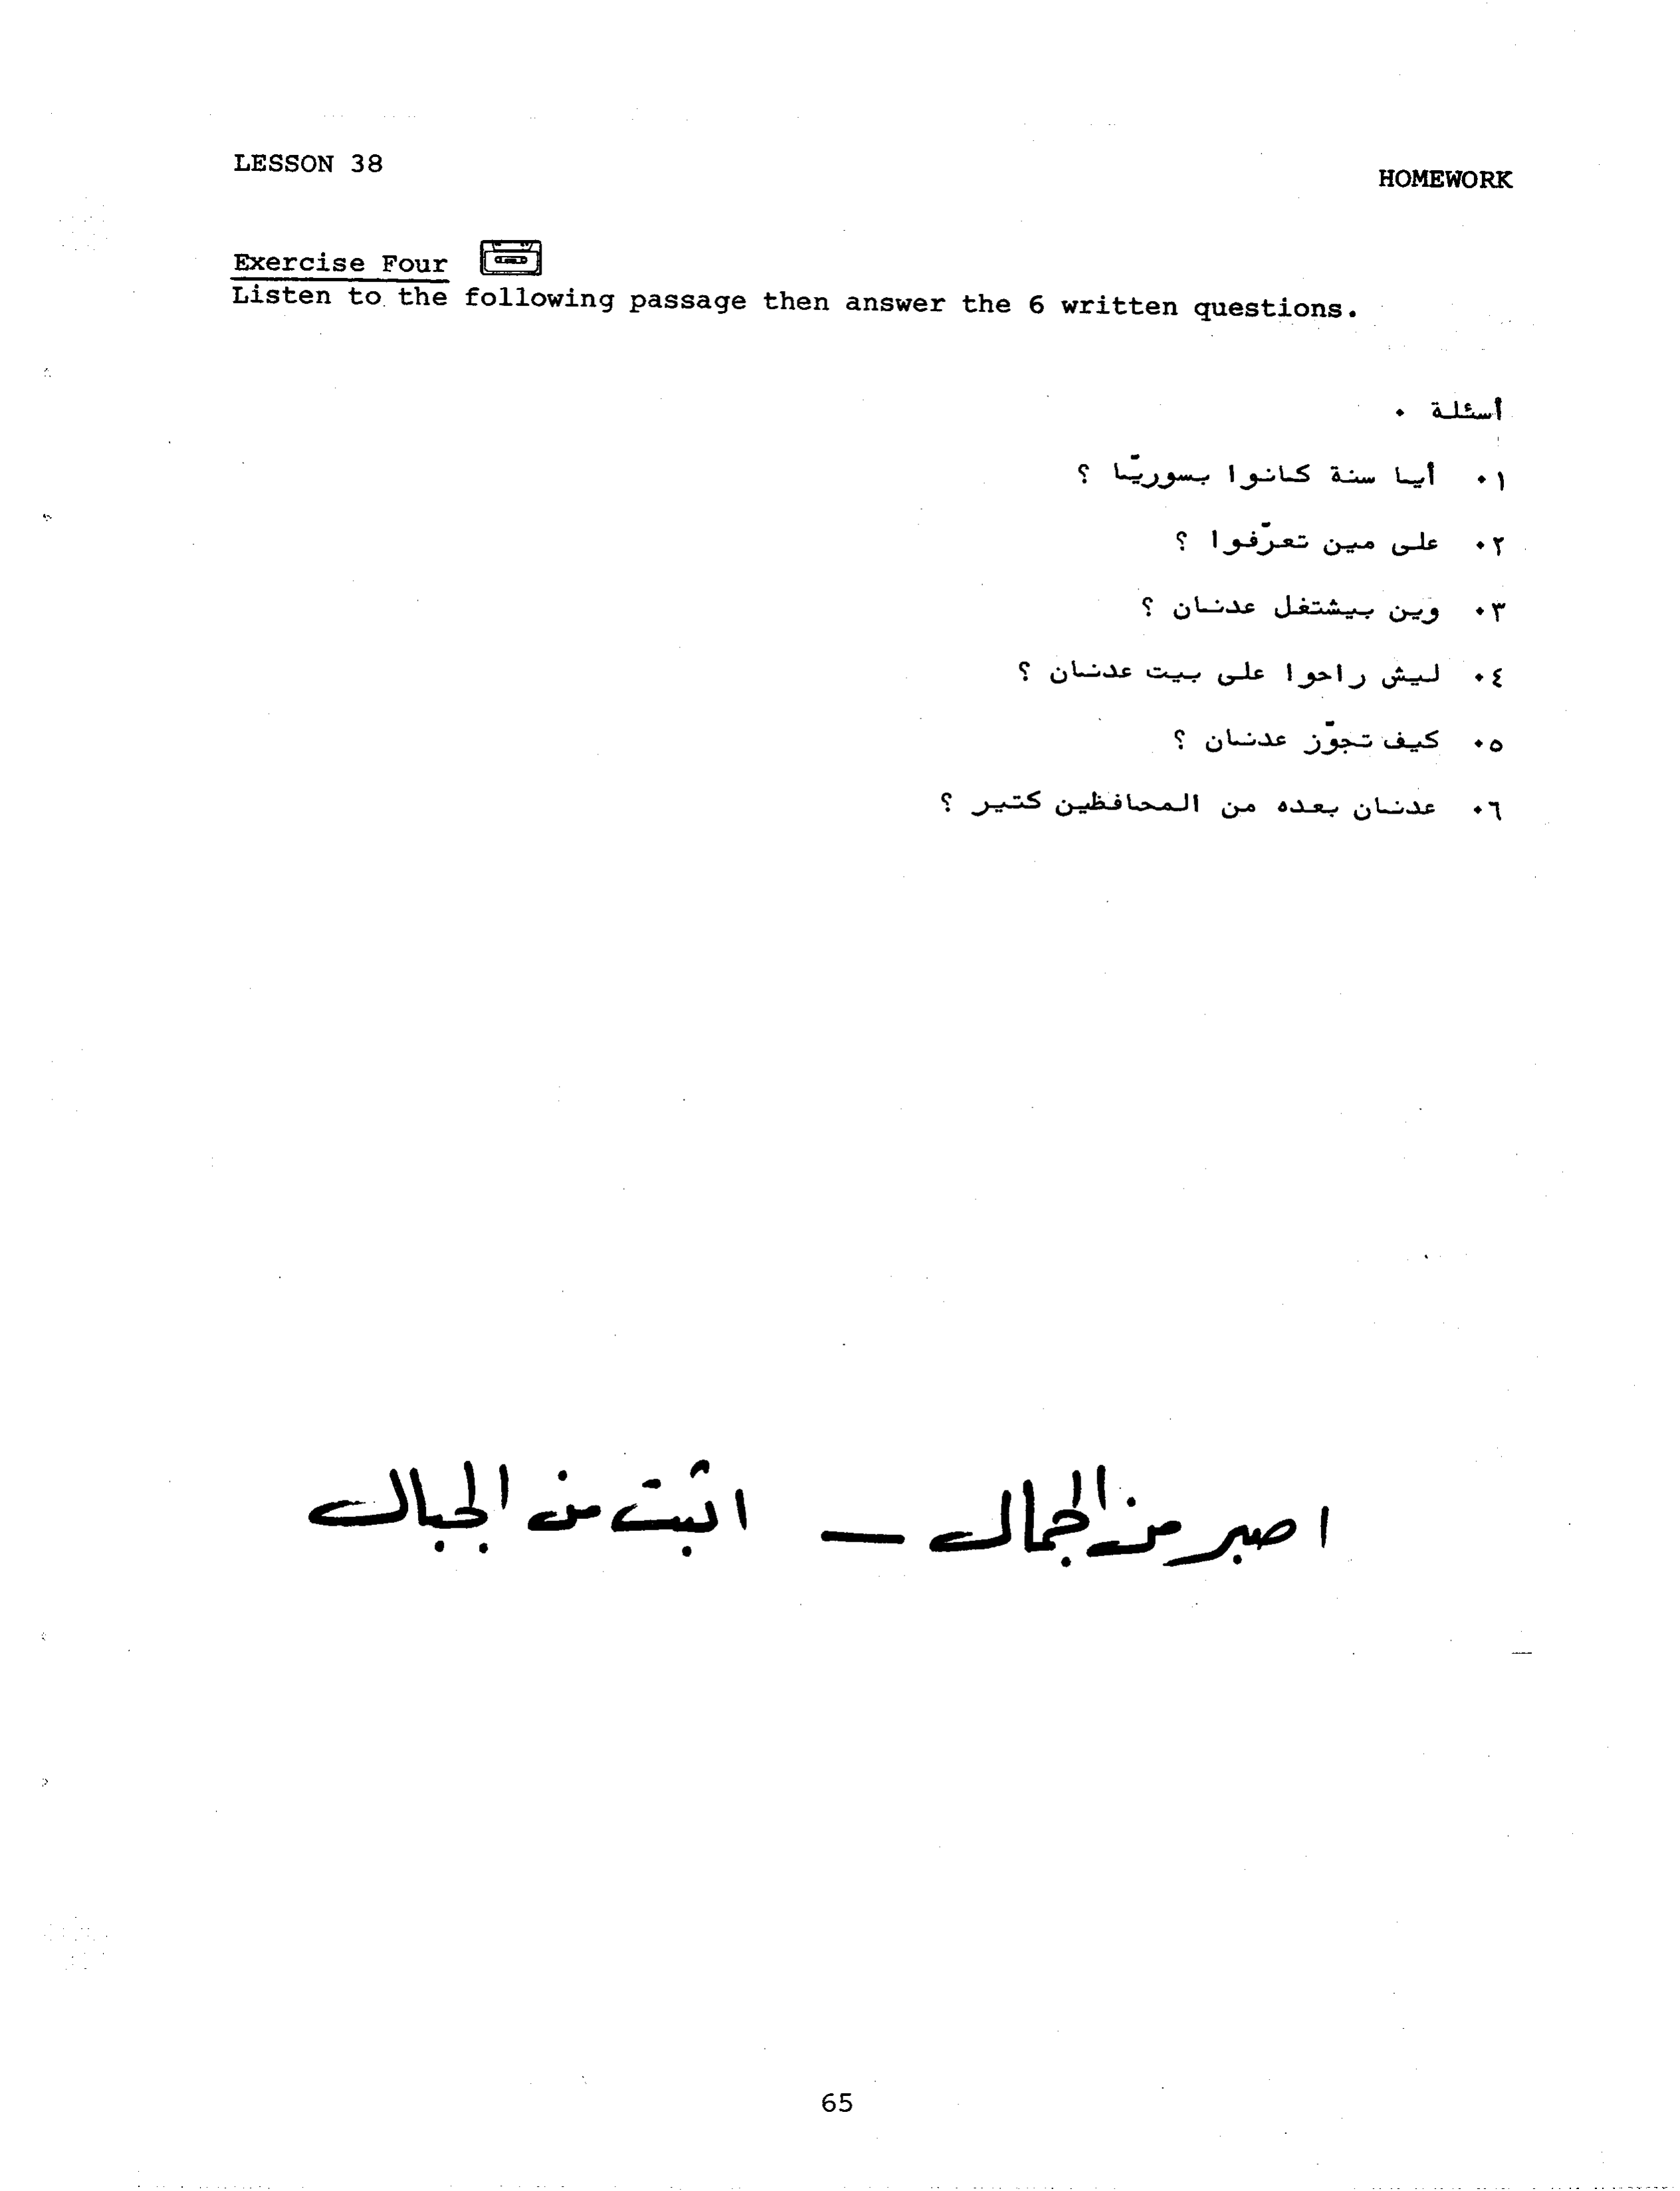 LESSON 38
HOMEWORK
Exercise Four
Listen to the following passage then answer the 6 written questions.
أسئلة ٠
٠١ أيا سنة كانوا بسوريّا ؟
٠٢ على مين تعرّفوا ؟
٠٣ وين بيشتغل عدنان ؟
٠٤ ليش راحوا على بيت عدنان ؟
٠٥ كيف تجوّز عدنان ؟
٠٦ عدنان بعده من المحافظين كتير ؟
اصبر من الجمال – اثبت من الجبال
65